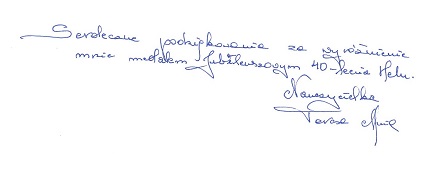 Serdeczne podziękowania za wyróżnienie
mnie medalem Jubileuszowym 40-lecia Helu.
Nauczycielka
Teresa